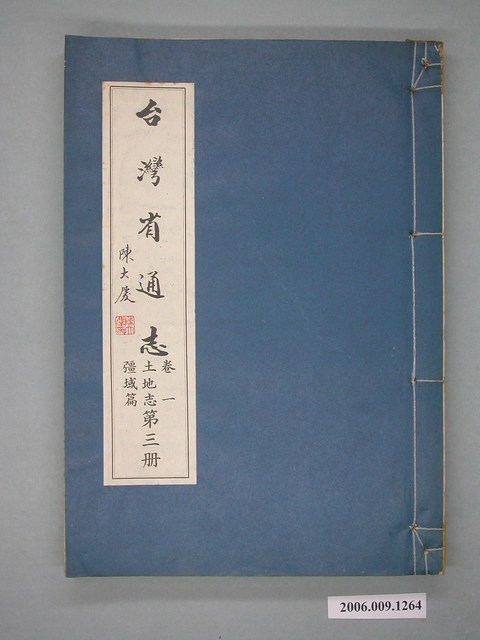 台灣省通志
陳大慶
卷一
土地志第三册
疆域篇
2006.009.1264